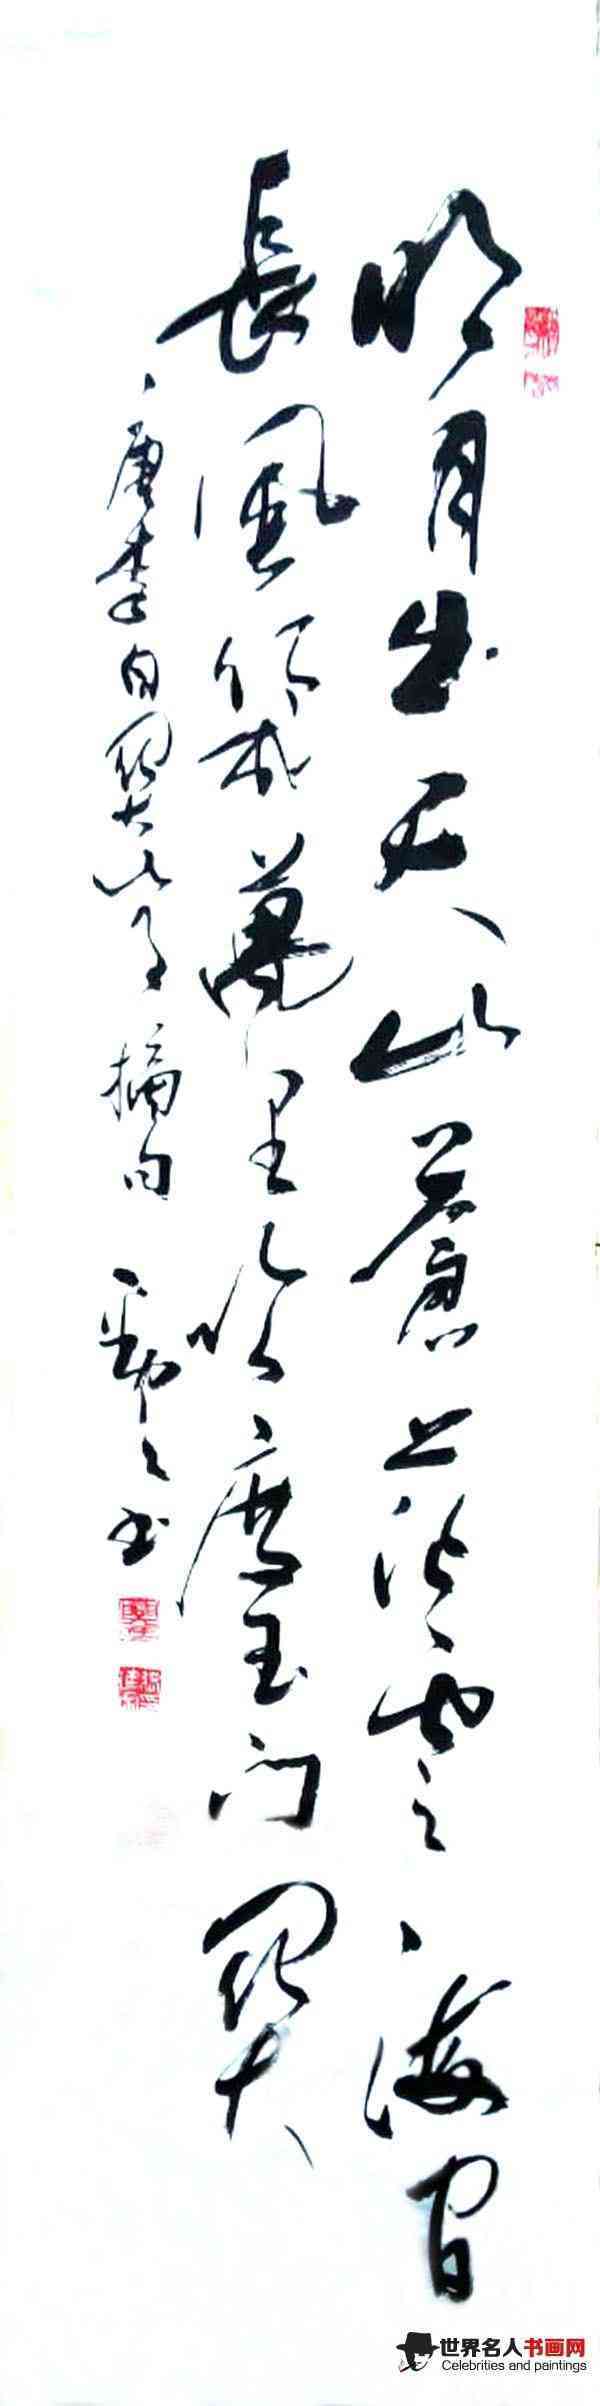 明月出天山蒼茫雲海間
長風幾萬里吹度玉門關
唐李白關山月摘句 之书
世界名人书画网
Celebrities and paintings